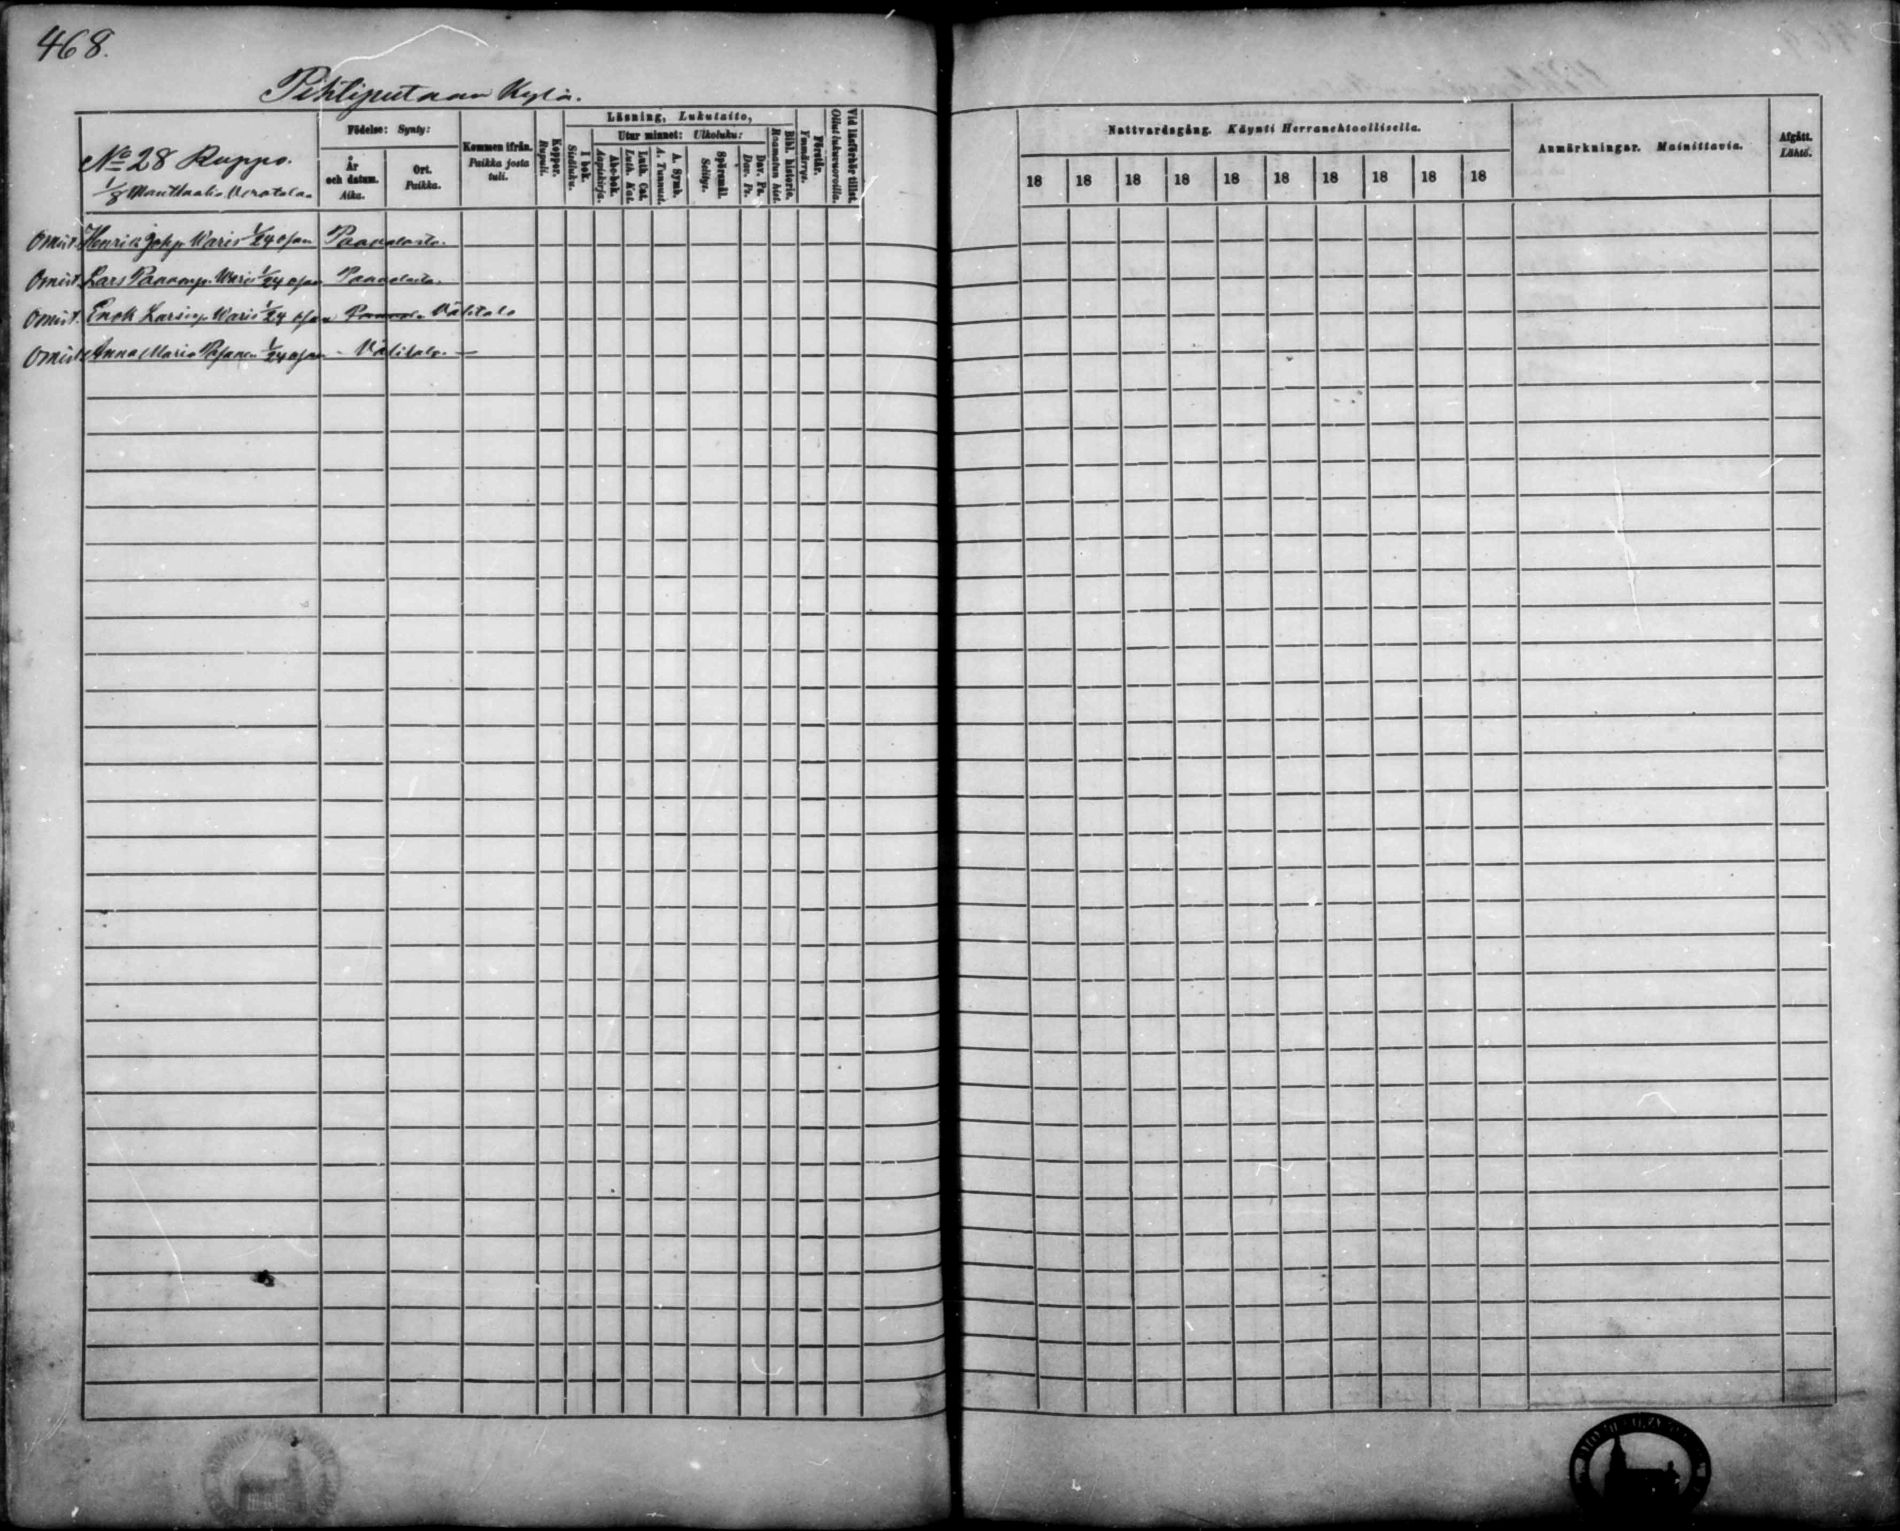 468.
Pihtiputaan Kylä.
No 28 Ruppo.
1/8 Manttaalia Verotaloa
Födelse: Synty:
År och datum. Aika.
Ort. Paikka.
Kommen ifrån. Paikka josta tuli.
Koppor. Rupuli.
Läsning, Lukutaito,
I bok. Sisäluku.
Utur minnet: Ulkoluku:
Abc-bok. Aapiskirja.
Luth. Cat. Luth. Kat.
A. Symb. A. Tunnust.
Spörsmål. Selitys.
Dav. Ps. Dav. Ps.
Bibl. historie. Raamatun hist.
Förstår. Ymmärrys.
Vid läsförhör tillst. Ollut lukuvuorolla.
Omist. Henrik Johp. Waris 1/24 osan Paanalasta.
Omist. Lars Paavonp. Waris 1/24 osan Paanalasta.
Omist. Enok Larsinp. Waris 1/24 osan Välitalo
Omist. Anna Maria 1/24 osan - Välitalo. —
Nattvardsgång. Käynti Herranehtoollisella.
18 18 18 18 18 18 18 18 18 18
Anmärkningar. Mainittavia.
Afgått. Lähtö.